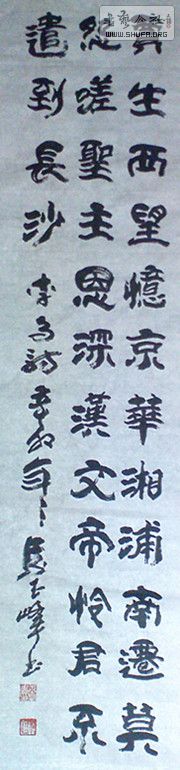 書藝公社
WWW.SHUFA.ORG
賈生西望憶京華湘浦南遷莫
怨嗟聖主恩深漢文帝怜君不
遣到長沙 李白詩